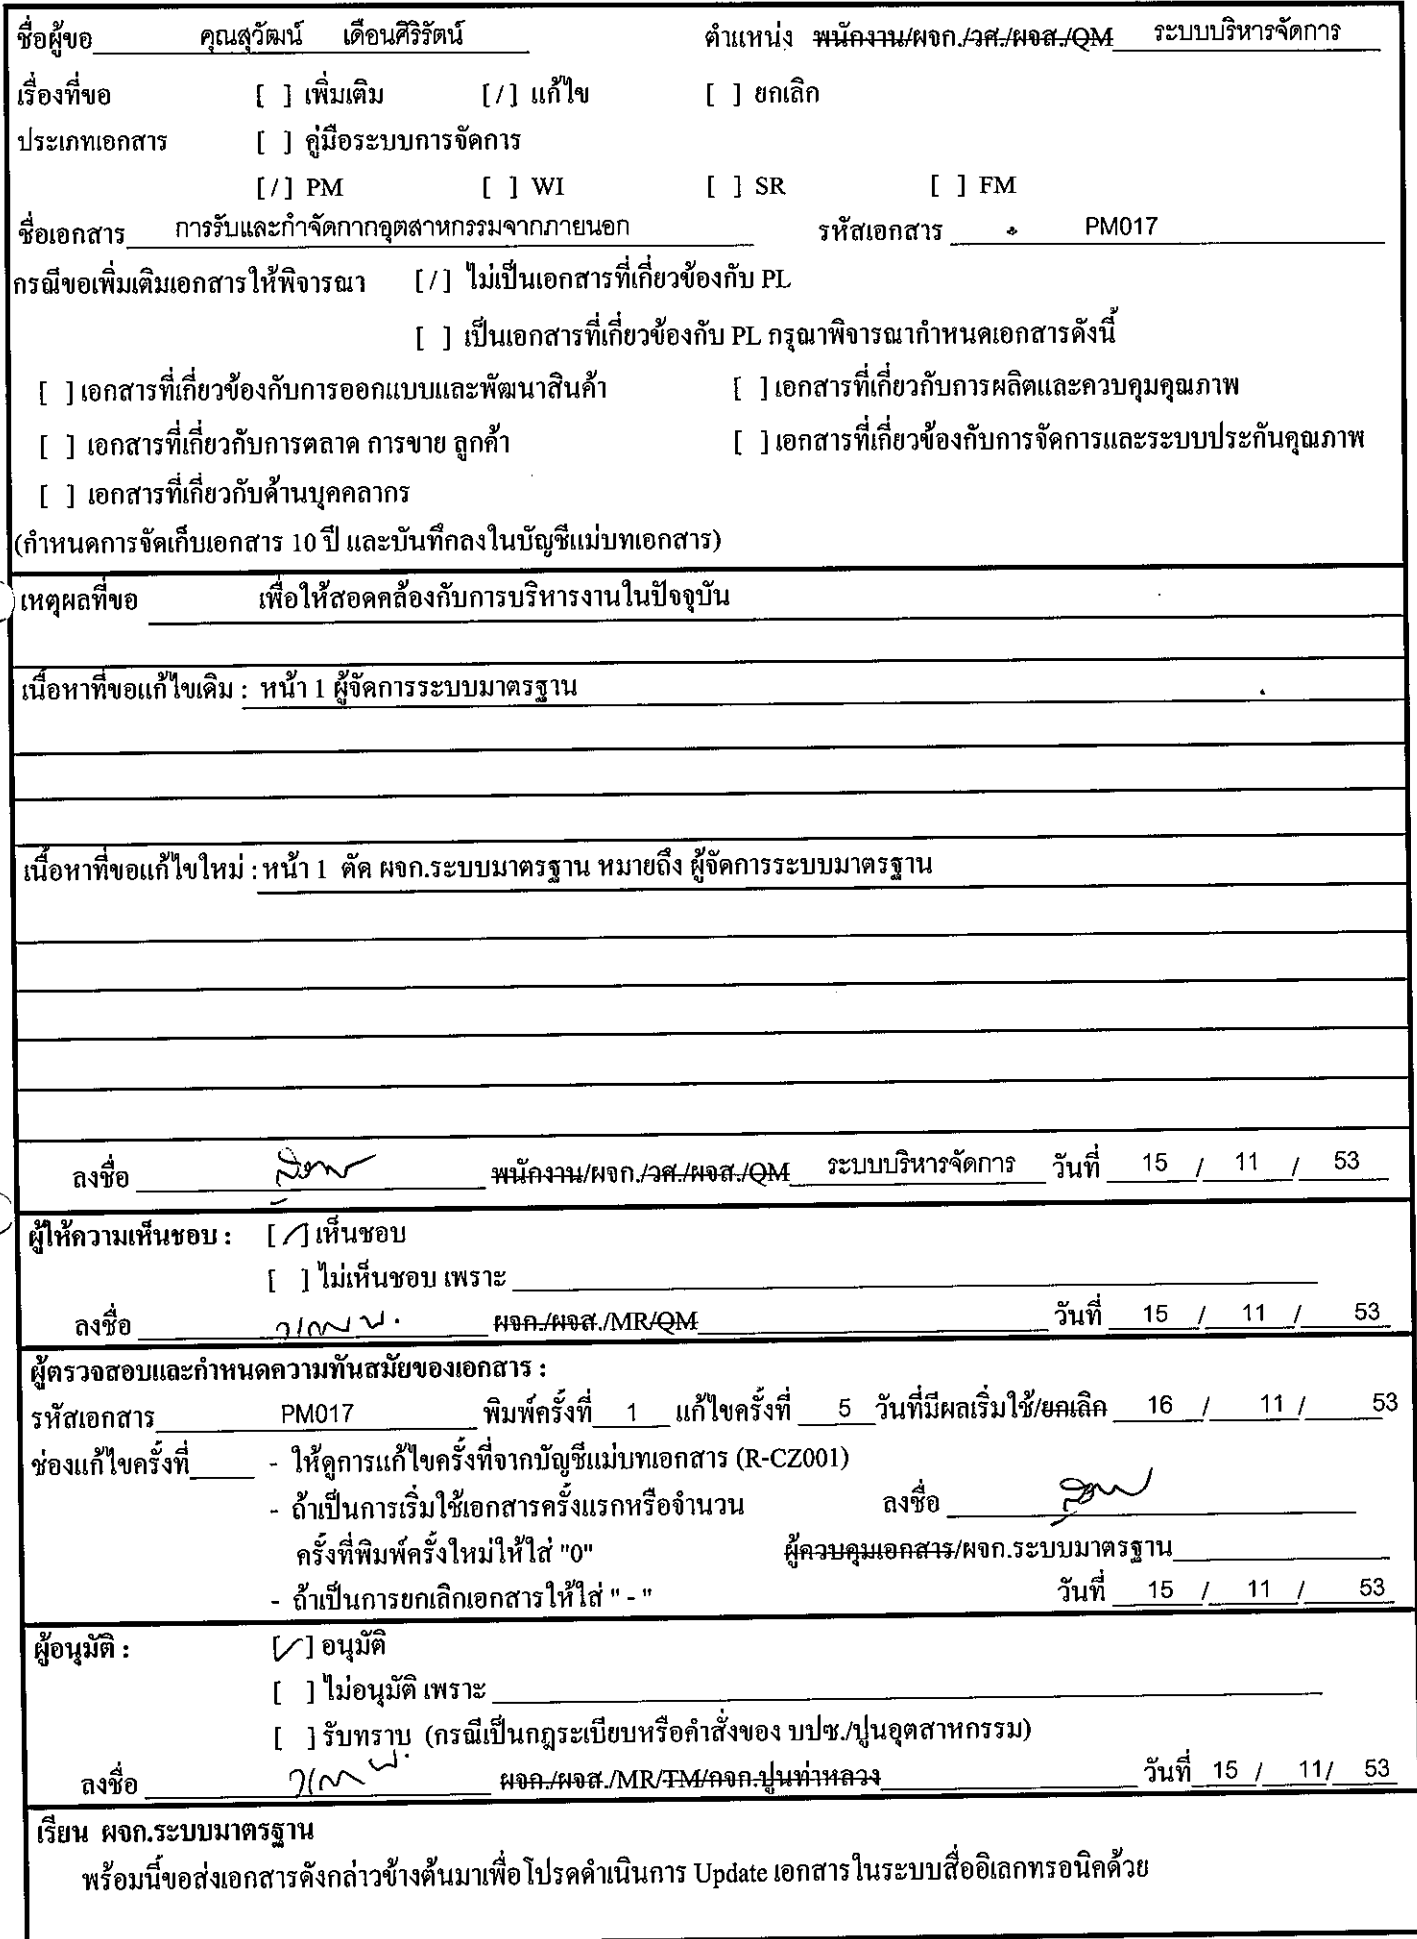 ชื่อผู้ขอ คุณสุวัฒน์ เดือนศิริรัตน์ ตำแหน่ง พนักงาน/ผจก./วศ./ผจส./QM ระบบบริหารจัดการ
เรื่องที่ขอ [ ] เพิ่มเติม [/] แก้ไข [ ] ยกเลิก
ประเภทเอกสาร [ ] คู่มือระบบการจัดการ
[/] PM [ ] WI [ ] SR [ ] FM
ชื่อเอกสาร การรับและกำจัดกากอุตสาหกรรมจากภายนอก รหัสเอกสาร PM017
กรณีขอเพิ่มเติมเอกสารให้พิจารณา [/] ไม่เป็นเอกสารที่เกี่ยวข้องกับ PL
[ ] เป็นเอกสารที่เกี่ยวข้องกับ PL กรุณาพิจารณากำหนดเอกสารดังนี้
[ ] เอกสารที่เกี่ยวข้องกับการออกแบบและพัฒนาสินค้า [ ] เอกสารที่เกี่ยวกับการผลิตและควบคุมคุณภาพ
[ ] เอกสารที่เกี่ยวกับการตลาด การขาย ลูกค้า [ ] เอกสารที่เกี่ยวข้องกับการจัดการและระบบประกันคุณภาพ
[ ] เอกสารที่เกี่ยวกับด้านบุคคลากร
(กำหนดการจัดเก็บเอกสาร 10 ปี และบันทึกลงในบัญชีแม่บทเอกสาร)
เหตุผลที่ขอ เพื่อให้สอดคล้องกับการบริหารงานในปัจจุบัน
เนื้อหาที่ขอแก้ไขเดิม : หน้า 1 ผู้จัดการระบบมาตรฐาน
เนื้อหาที่ขอแก้ไขใหม่ : หน้า 1 ตัด ผจก.ระบบมาตรฐาน หมายถึง ผู้จัดการระบบมาตรฐาน
ลงชื่อ พนักงาน/ผจก./วศ./ผจส./QM ระบบบริหารจัดการ วันที่ 15 / 11 / 53
ผู้ให้ความเห็นชอบ : [/] เห็นชอบ
[ ] ไม่เห็นชอบ เพราะ
ลงชื่อ ผจก./ผจส./MR/QM วันที่ 15 / 11 / 53
ผู้ตรวจสอบและกำหนดความทันสมัยของเอกสาร :
รหัสเอกสาร PM017 พิมพ์ครั้งที่ 1 แก้ไขครั้งที่ 5 วันที่มีผลเริ่มใช้/ยกเลิก 16 / 11 / 53
ช่องแก้ไขครั้งที่ - ให้ดูการแก้ไขครั้งที่จากบัญชีแม่บทเอกสาร (R-CZ001)
- ถ้าเป็นการเริ่มใช้เอกสารครั้งแรกหรือจำนวน ลงชื่อ
ครั้งที่พิมพ์ครั้งใหม่ให้ใส่ "0" ผู้ควบคุมเอกสาร/ผจก.ระบบมาตรฐาน
- ถ้าเป็นการยกเลิกเอกสารให้ใส่ " - " วันที่ 15 / 11 / 53
ผู้อนุมัติ : [✓] อนุมัติ
[ ] ไม่อนุมัติ เพราะ
[ ] รับทราบ (กรณีเป็นกฎระเบียบหรือคำสั่งของ บปซ./ปูนอุตสาหกรรม)
ลงชื่อ ผจก./ผจส./MR/TM/กจก.ปูนท่าหลวง วันที่ 15 / 11/ 53
เรียน ผจก.ระบบมาตรฐาน
พร้อมนี้ขอส่งเอกสารดังกล่าวข้างต้นมาเพื่อโปรดดำเนินการ Update เอกสารในระบบสื่ออิเลกทรอนิคด้วย